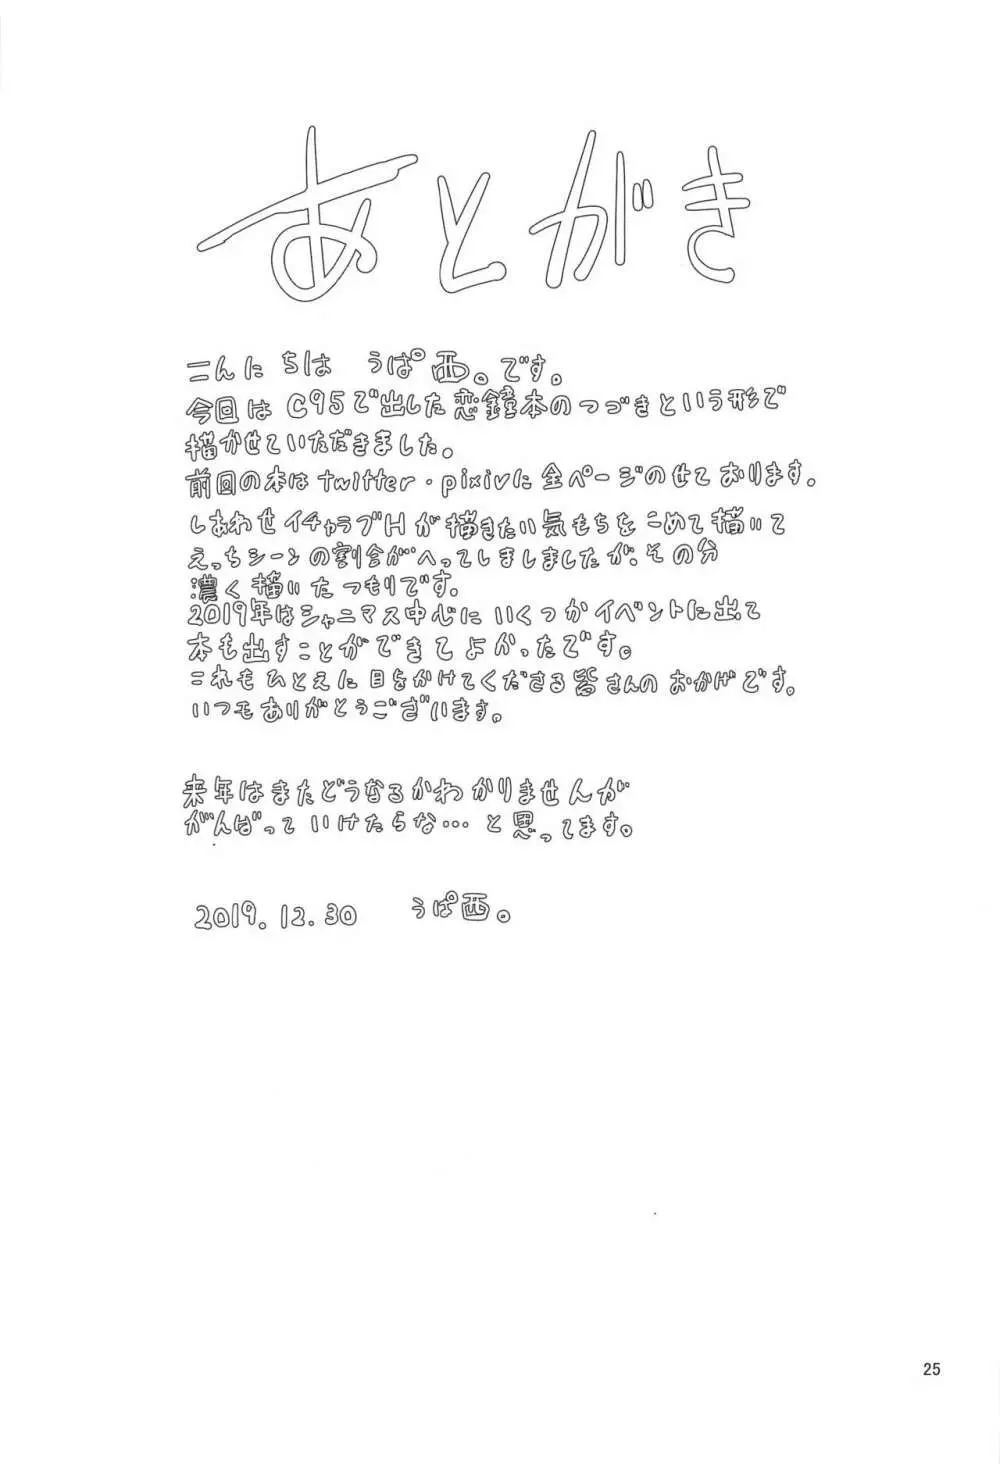 あとがき
こんにちは うぱ西。です。
今回は C95で出した恋鐘本のつづきという形で
描かせていただきました。
前回の本はtwitter・pixivに全ページのせております。
しあわせイチャラブHが描きたい気もちをこめて描いて
えっちシーンの割合がへってしましましたが、その分
濃く描いたつもりです。
2019年はシャニマス中心にいくつかイベントに出て
本も出すことができてよかったです。
これもひとえに目をかけてくださる皆さんのおかげです。
いつもありがとうございます。
来年はまたどうなるかわかりませんが
がんばっていけたらな…と思ってます。
2019.12.30 うぱ西。
25